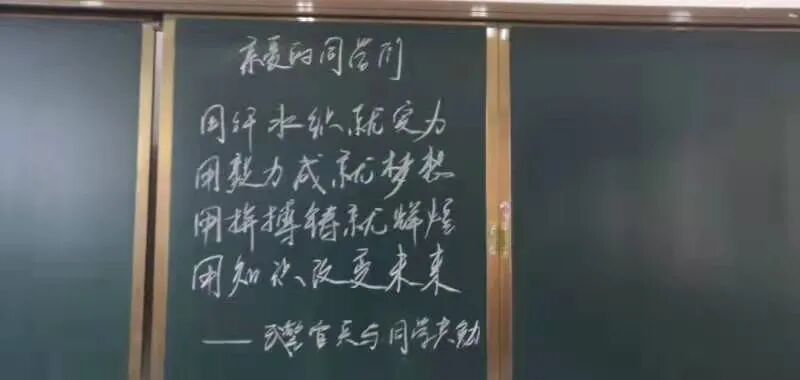 亲爱的同学们
用汗水织就实力
用毅力成就梦想
用拼搏铸就辉煌
用知识改变未来
——警官天与同学共勉